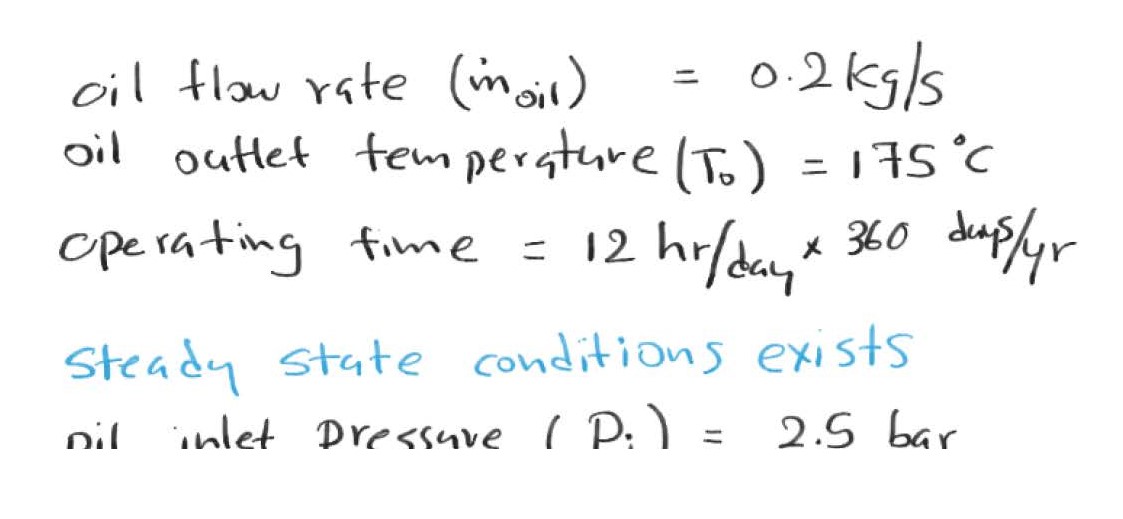 oil flow rate (ṁoil) = 0.2 kg/s
oil outlet temperature (To) = 175 °C
operating time = 12 hr/day * 360 days/yr
Steady state conditions exists
oil inlet pressure (Pi) = 2.5 bar